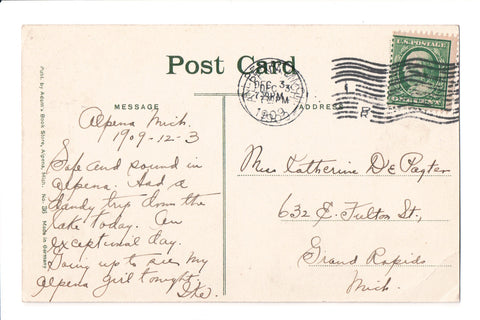 Post Card
MESSAGE
ADDRESS
Alpena Mich.
1909-12-3
Safe and sound in
Alpena. Had a
dandy trip down the
lake today. An
exceptional day.
Going up to see my
Alpena girl tonight.
Ike.
Miss Catherine De Pagter
632 E. Fulton St.,
Grand Rapids
Mich.
DEC 3
1909
U.S. POSTAGE
Pub. by Adam's Book Store, Alpena, Mich. Made in Germany